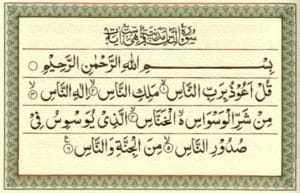 سُوْرَةُ النَّاسِ مَدَنِيَّةٌ وَهِيَ سِتُّ اٰيَاتٍ
بِسْمِ اللهِ الرَّحْمٰنِ الرَّحِيْمِ ○
قُلْ اَعُوْذُ بِرَبِّ النَّاسِ ۙ۱ مَلِكِ النَّاسِ ۙ۲ اِلٰهِ النَّاسِ ۙ۳
مِنْ شَرِّ الْوَسْوَاسِ ۙ الْخَنَّاسِ ۙ۴ الَّذِيْ يُوَسْوِسُ فِيْ
صُدُوْرِ النَّاسِ ۙ۵ مِنَ الْجِنَّةِ وَالنَّاسِ ۶